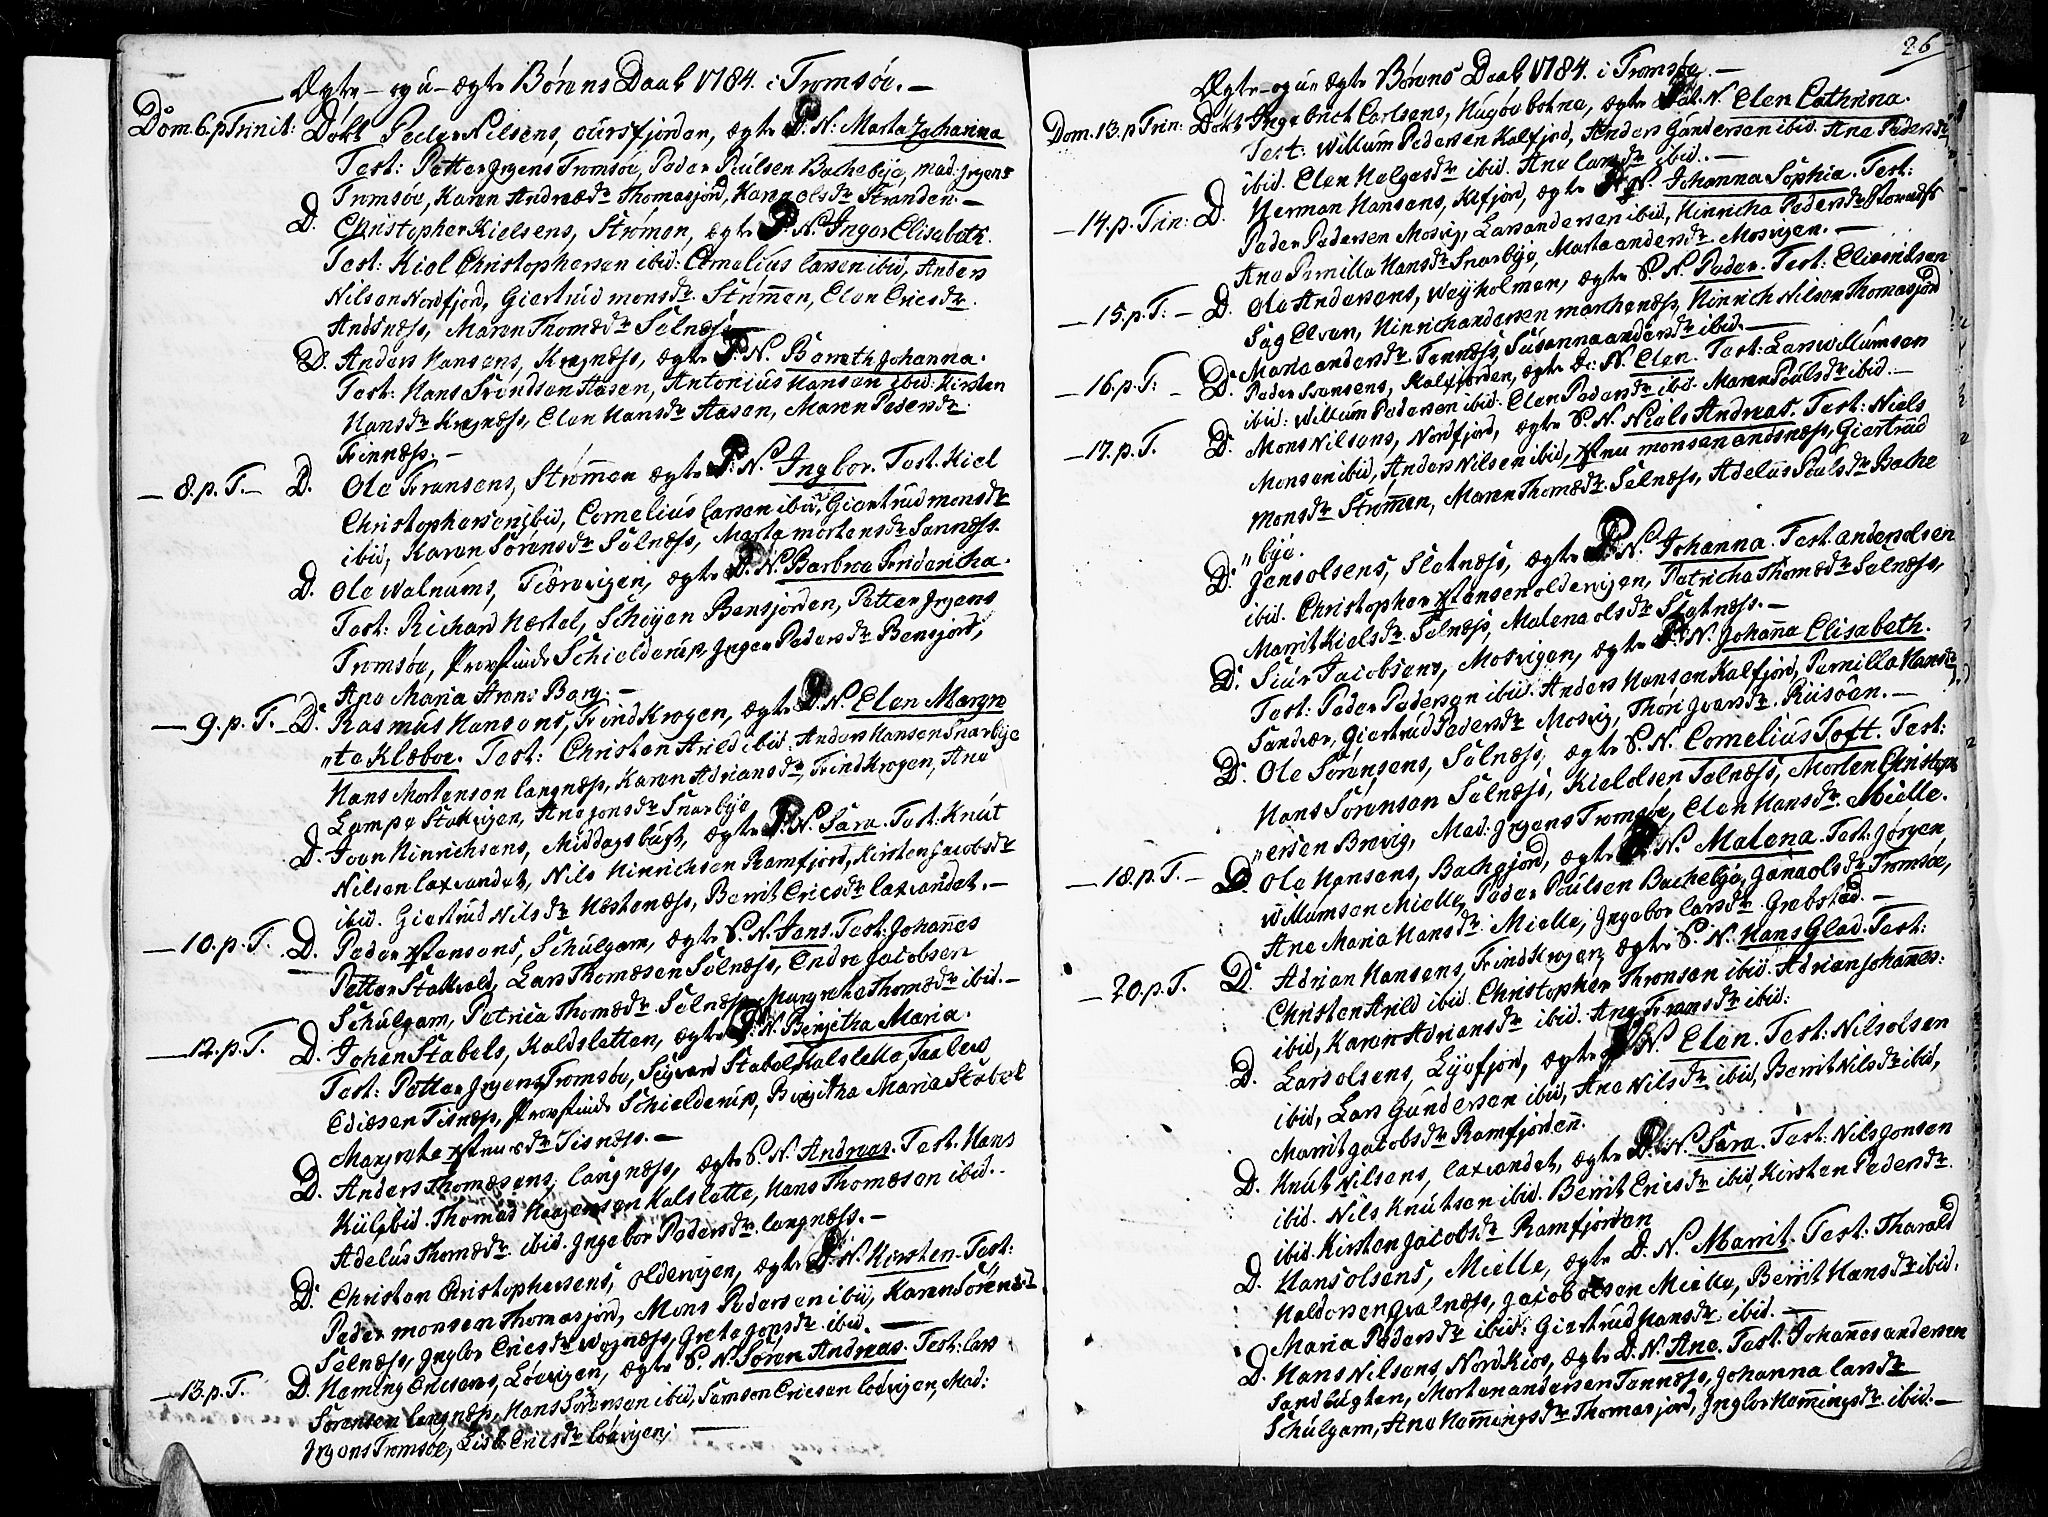 Ægte- og u-ægte Børens Daab 1784. i Tromsøe.-
Dom. 6. p Trinit: Døbt Peder Nilsens, oursfjorden, ægte P. N: Marta Johanna
Test: Petter Jrgens Tromsøe, Peder Povlsen Bachebÿe, Mad: Jrgens
Tromsøe, Karen Andreædr Thomasjord, Karen olsdr Stranden.-
D. Christopher Kielsens, Strømen, ægte P. N. Inger Elisabeth.
Test: Kiel Christophersen ibid: Cornelius larsen ibid, Anders
Nilsen Nordfjord, Giertrud monsdr Strømen, Elen Ericsdr.
Andsnæss, Maren Thomædr Sælnæss.
D. Anders Hansens, Kragnæss, ægte P. N. Bereth Johanna.
Test: Hans Svendsen Aasen, Antonius Hansen ibid: Kirsten
Hansdr Kragnæss, Elen Hansdr Aasen, Maren Pedersdr
Finnæss.-
- 8. p. T.- D. Ole Fransens, Strømen ægte P. N. Ingbor. Test. Kiel
Christophersen ibid, Cornelius larsen ibid, Giertrud monsdr
ibid, Karen Sørensdr Sælnæss, Marta mortensdr Sannæss.
D. Ole Walnums, Tiærevigen, ægte P. N. Barbra Fridericha.
Test: Richard Hertel, Scheÿen Bensjorden, Petter Jrgens
Tromsøe, Provstinde Schielderup, Jnger Pedersdr Bensjord,
Ana Maria Arns: Barg.-
- 9. p. T.- D. Rasmus Hansens, Findkrogen, ægte P. N. Elen Margre
"te Klæboe. Test: Christen Arild ibid: Anders Hansen Snarbÿe
Hans Mortenson langnæss, Karen Adriansdr, Findkrogen, Ane
Lampe Stakvigen, Ane jonsdr Snarbÿe,
D. Joen Hinrichsens, Middagsbugt, ægte P. N. Sara. Test: Knut
Nilsen laxvandet, Nils Hinrichsen Ramfjord, Kirsten Jacobsdr
ibid. Giertrud Nilsdr Hestenæss, Berrit Ericsdr laxvandet.-
- 10. p. T. D. Peder Xstensens, Schulgam, ægte P. N. Jens. Test: Johanes
Petter Stakvold, Lars Thomæsen Sælnæss, Endre Jacobsen
Schulgam, Petricia Thomædr Sælnæss, Margrete Thomædr ibid.-
- 12. p. T. D. Johan Stabels, Kaldsletten, ægte P. N. Birgitha Maria.
Test: Petter Jrgens Tromsøe, Sigvard Stabel Kalslette, Faaberg
Ediæsen Tisnæss, Provstinde Schielderup, Birgitha Maria Stabel
Margrete Xstensdr Tisnæss.-
D. Anders Thomæsens, langnæss, ægte P. N. Andreas. Test: Hans
Kiil ibid. Thomas Haagensen Kalslette, Hans Thomæsen ibid.
Adelus Thomædr ibid. Jngebor Pedersdr langnæss.-
D. Christen Christophersens, oldervigen, ægte P. N. Kirsten. Test:
Peder monsen Thomasjord, Mons Pedersen ibid, Karen Sørensdr
Selnæss, Jngbor Ericsdr Wognæss, Grete jonsdr ibid.-
- 13. p. T. D. Heming Ericsens, Løevigen, ægte P. N. Søren Andreas. Test: lars
Sørensen langnæss, Hans Sørensen ibid, Samson Ericsen Løevigen, Mad:
Jrgens Tromsøe, Lisb: Ericsdr Løevigen;
26
Ægte- og u- ægte Børens Daab 1784. i Tromsøe.-
Dom. 13. p Trin: Døbt Ingebrict Carlsens, Hugøebotne, ægte P. N. Elen Cathrina.
Test: Willum Pedersen Kalfjord, Anders Gundersen ibid. Ane Pedersdr
ibid. Elen Helgesdr ibid. Ane larsdr ibid.-
- 14. p. Trin: D. Herman Hansens, Kifjord, ægte P. N. Johanna Sophia. Test:
Peder Pedersen Mosvig, Lars andersen ibid, Hinricha Pedersdr
Ane Pernilla Hansdr Snarbÿe, Marta andersdr Mosvigen.-
- 15. p. T:- D. Ole Andersens, Weÿholmen, ægte P. N. Peder. Test: Elias nilsen
Sag Elven, Hinrich andersen marchenæss, Hinrich Nilsen Thomasjord
Maria andersdr Tennæss, Susanna andersdr ibid.-
- 16. p. T: D. Peder Ivensens, Kalfjorden, ægte P. N. Elen. Test: Lars willumsen
ibid: Willum Pedersen ibid: Elen Pedersdr ibid. Maren Povlsdr ibid.-
- 17. p. T. D. Mons Nilsens, Nordfjord, ægte P. N. Niels Andreas. Test: Niels
Monsen ibid, Anders Nilsen ibid, Xsten monsen andsnæss, Giertrud
Monsdr Strømen, Maren Thomædr Sælnæss, Adelus Povlsdr Bache
"bÿe.
D. Jens olsens, Slatnæss, ægte P. N. Johanna. Test. anders olsen
ibid. Christopher Xstensen oldervigen, Patricha Thomædr Sælnæss,
Marrit Kielsdr Sælnæss, Malena olsdr Slatnæss.-
D. Siur Jacobsens, Mosvigen, ægte P. N. Johanna Elisabeth.
Test: Peder Pedersen ibid. Anders Hansen Kalfjord, Pernilla Hansdr
Sandvær, Giertrud Pedersdr Mosvig, Thori Jversdr Riisøen.-
D. Ole Sørensens, Sælnæss, ægte P. N. Cornelius Toft. Test:
Hans Sørensen Sælnæss, Kield olsen Sælnæss, Morten Christoph
"ersen Brevig, Mad: Jrgens Tromsøe, Elen Hansdr Mielle.
- 18. p. T.- D. Ole Hansens, Bachejord, ægte P. N. Malena. Test: Jørgen
Willumsen Mielle, Peder Povlsen Bachebÿe, Jana olsdr Tromsøe,
Ane Maria Hansdr Mielle, Jngebor larsdr Grebstad.-
- 20. p. T. D. Adrian Hansens, Findkrogen, ægte P. N. Hans Glad. Test:
Christen Arild ibid. Christopher Thronsen ibid. Adrian Johannes:
ibid, Karen Adriansdr ibid. Ane Fransdr ibid:
D. Lars olsens, Lÿefjord, ægte P. N. Elen. Test: Nils olsen
ibid, Lars Gundersen ibid, Ane Nilsdr ibid, Berrit Nilsdr ibid,
Marrit jacobsdr Ramfjorden.
D. Knut Nilsens, laxvandet, ægte P. N. Sara. Test: Nils Jonsen
ibid. Nils Knutsen ibid. Berrit Ericsdr ibid, Kirsten Pedersdr.
ibid. Kirsten Jacobsdr Ramfjorden
D. Hans olsens, Mielle, ægte D. N. Marrit. Test: Tharald
Haldorsen Gralnæss, Jacob olsen Mielle, Berrit Hansdr ibid.
Maria Pedersdr ibid: Giertrud Hansdr ibid.-
D. Hans Nilsens, Nordkios, ægte D. N. Ane. Test. Johanes andersen
Sand bugten, Morten andersen Tennæss, Johanna larsdr
Schulgam, Ane Hemingsdr Thomasjord, Jngbor Hemingsdr ibid:-